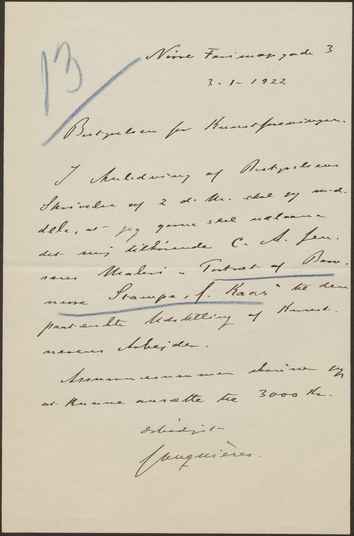 13
Nørre Farimagsgade 3
3-1-1922
Bestyrelsen for Kunstforeningen.
I Anledning af Bestyrelsens
Skrivelse af 2 d. M. skal jeg med-
dele, at jeg gerne skal udlaane
det mig tilhørende C. A. Jen-
sens Maleri "Portræt af Baro-
nesse Stampe, f. Kaas" til den
paatænkte Udstilling af Kunst-
nerens Arbejder.
Assurancesummen skønner jeg
at kunne ansætte til 3000 Kr.
Ærbødigst
Jonquières.